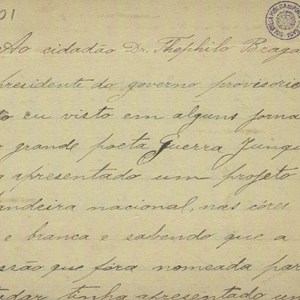 01
Ao cidadão Dr. Thephilo Braga
presidente do governo provisorio
eu visto em alguns jorna
grande poeta Guerra Junqu
apresentado um projeto
andeira nacional, nas côres
e branca e sabendo que a
ssão que fôra nomeada par
tinha apresentado u